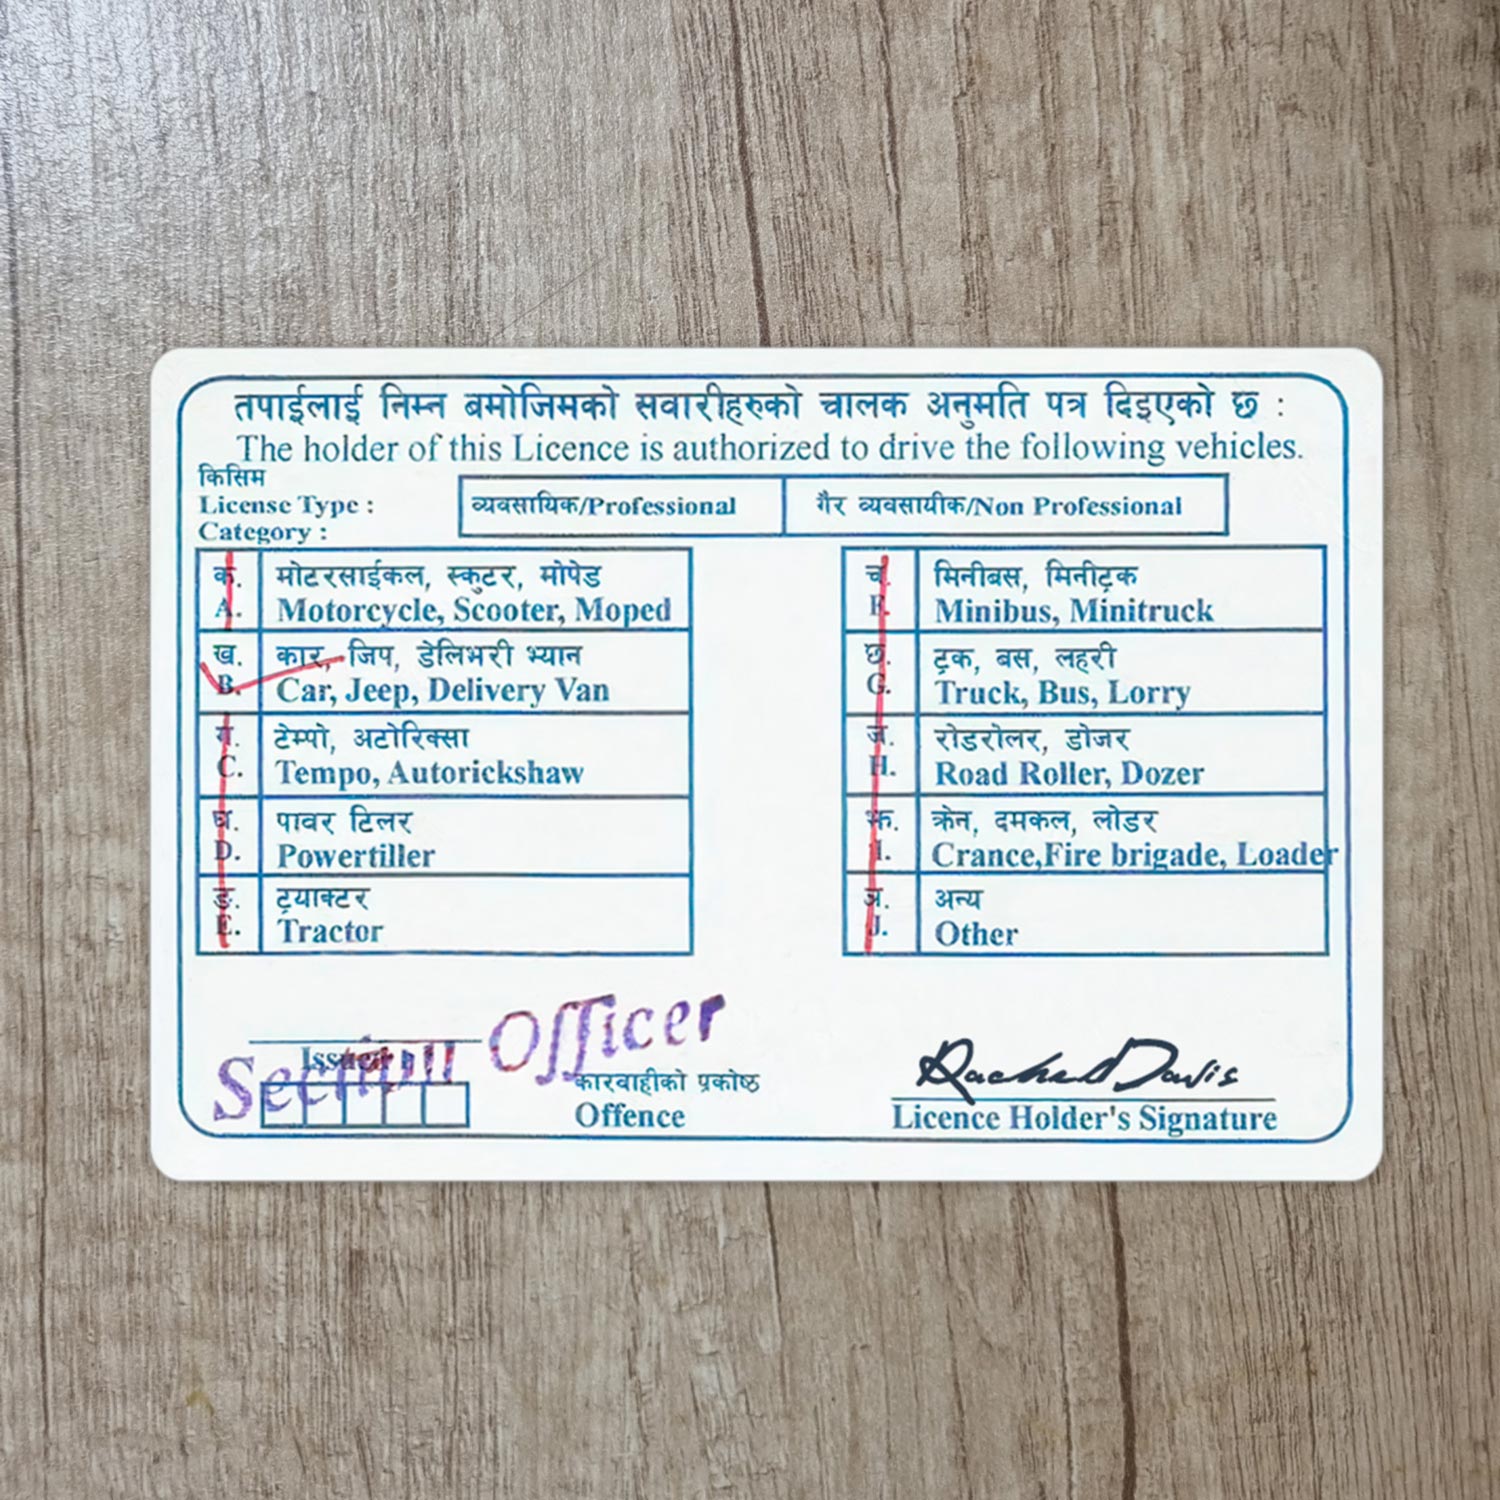 तपाईलाई निम्न बमोजिमको सवारीहरुको चालक अनुमति पत्र दिइएको छ :
The holder of this Licence is authorized to drive the following vehicles.
किसिम
License Type :
व्यवसायिक/Professional
गैर व्यवसायीक/Non Professional
Category :
क. मोटरसाईकल, स्कुटर, मोपेड
A. Motorcycle, Scooter, Moped
ख. कार, जिप, डेलिभरी भ्यान
B. Car, Jeep, Delivery Van
ग. टेम्पो, अटोरिक्सा
C. Tempo, Autorickshaw
घ. पावर टिलर
D. Powertiller
ङ. ट्रयाक्टर
E. Tractor
च. मिनीबस, मिनीट्रक
F. Minibus, Minitruck
छ. ट्रक, बस, लहरी
G. Truck, Bus, Lorry
ज. रोडरोलर, डोजर
H. Road Roller, Dozer
झ. क्रेन, दमकल, लोडर
I. Crance,Fire brigade, Loader
ञ. अन्य
J. Other
Section Officer
कारवाहीको प्रकोष्ठ
Offence
Rachel Davis
Licence Holder's Signature